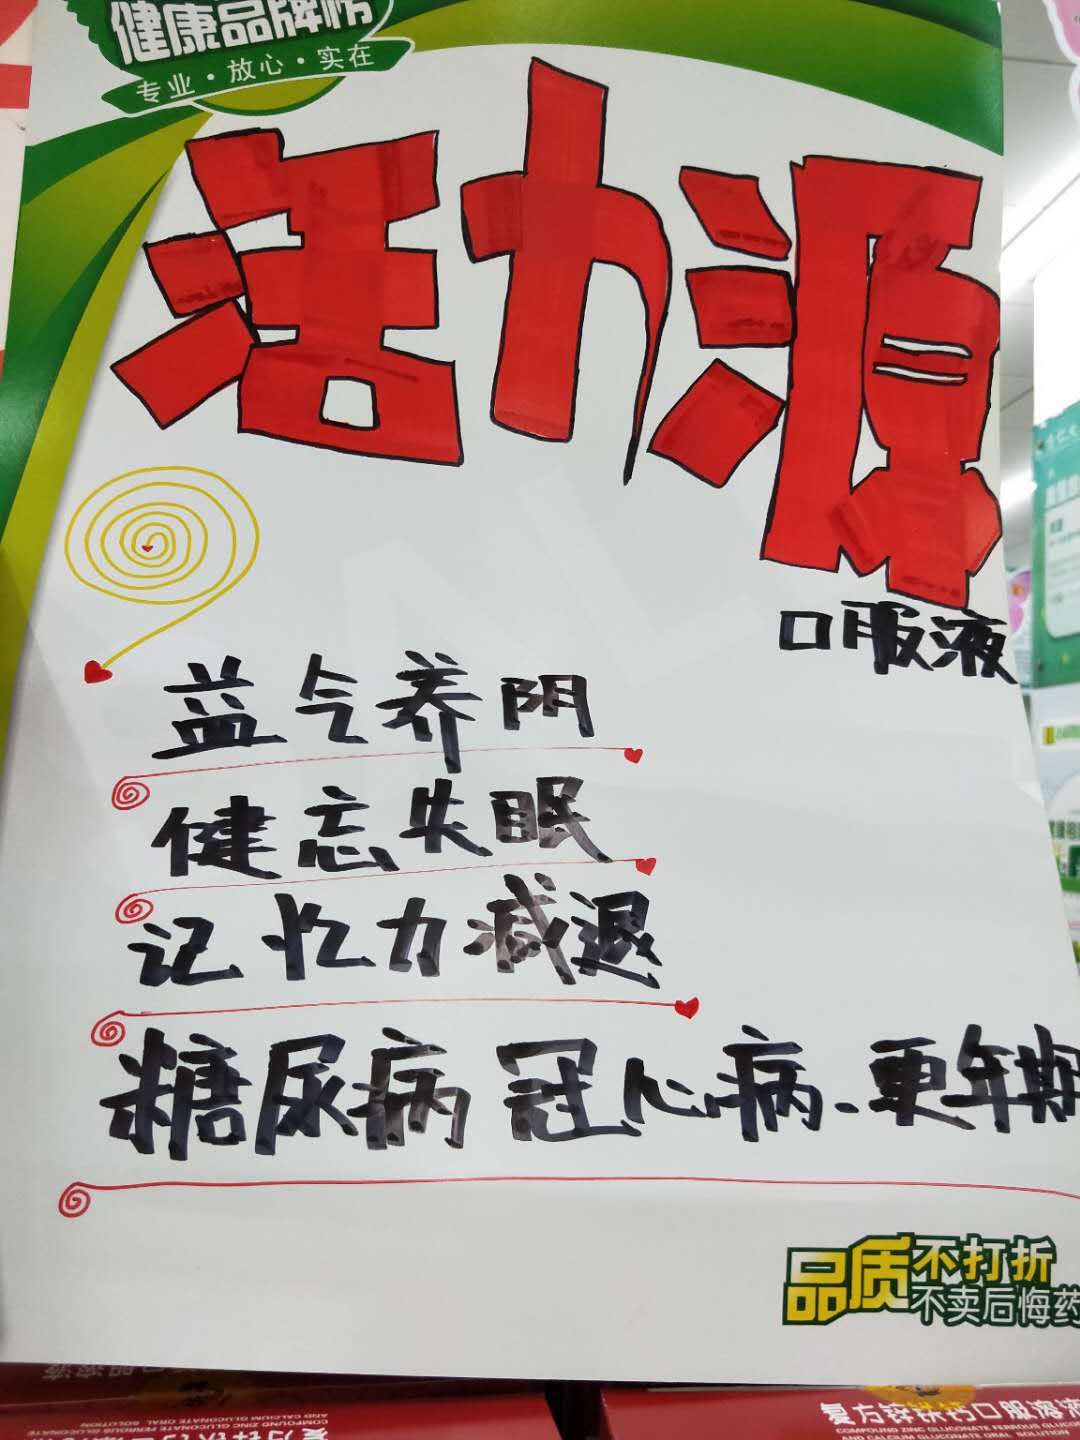 健康品牌榜
专业·放心·实在
活力源
口服液
益气养阴
健忘失眠
记忆力减退
糖尿病 冠心病、更年期
品质不打折
不卖后悔药
复方锌铁钙口服溶液
COMPOUND ZINC GLUCONATE FERROUS GLUCONATE
AND CALCIUM GLUCONATE ORAL SOLUTION